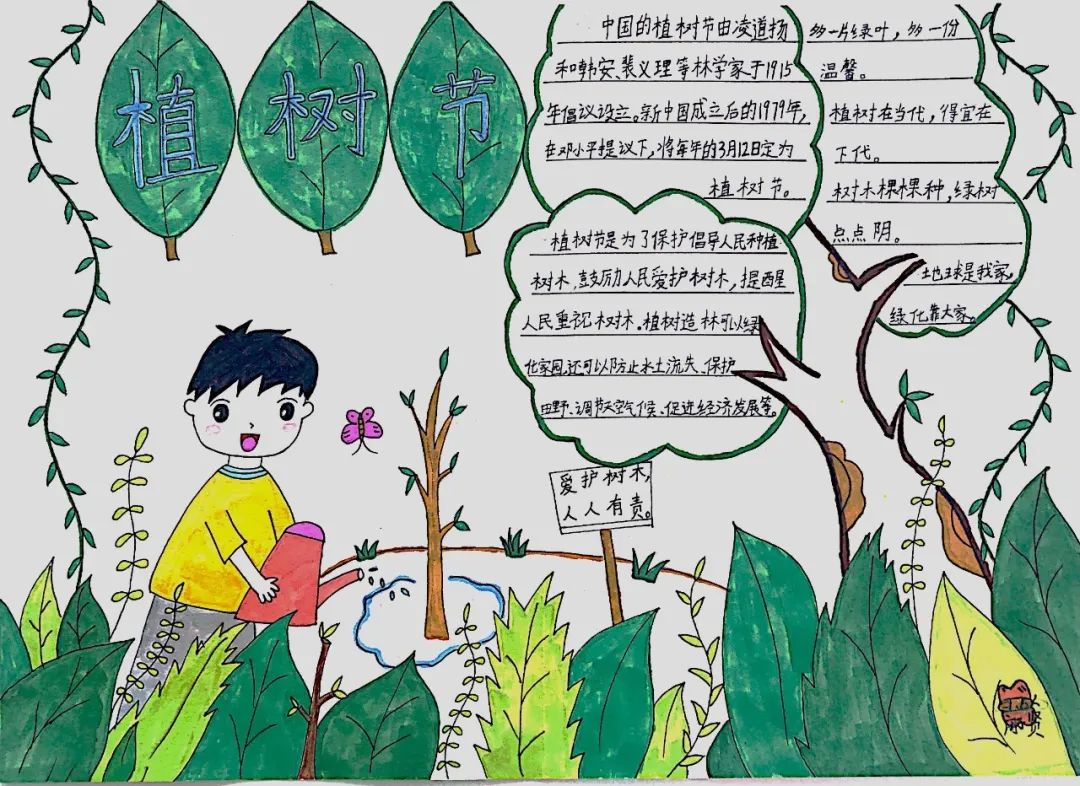 植树节
中国的植树节由凌道扬
和韩安、裴义理等林学家于1915
年倡议设立。新中国成立后的1979年,
在邓小平提议下,将每年的3月12日定为
植树节。
多一片绿叶,多一份
温馨。
植树在当代,得宜在
下代。
树木棵棵种,绿树
点点阴。
地球是我家,
绿化靠大家。
植树节是为了保护倡导人民种植
树木,鼓励人民爱护树木,提醒
人民重视树木。植树造林可以绿
化家园,还可以防止水土流失、保护
田野、调节天空气候、促进经济发展等。
爱护树木,
人人有责。